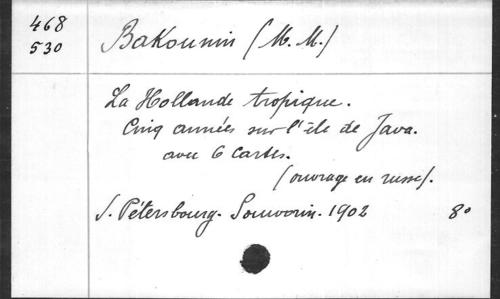 468
530
Bakounin (M. M.)
La Hollande tropique.
Cinq années sur l'île de Java.
avec 6 cartes.
(ouvrage en russe).
S. Pétersbourg. Souvorin. 1902 8°